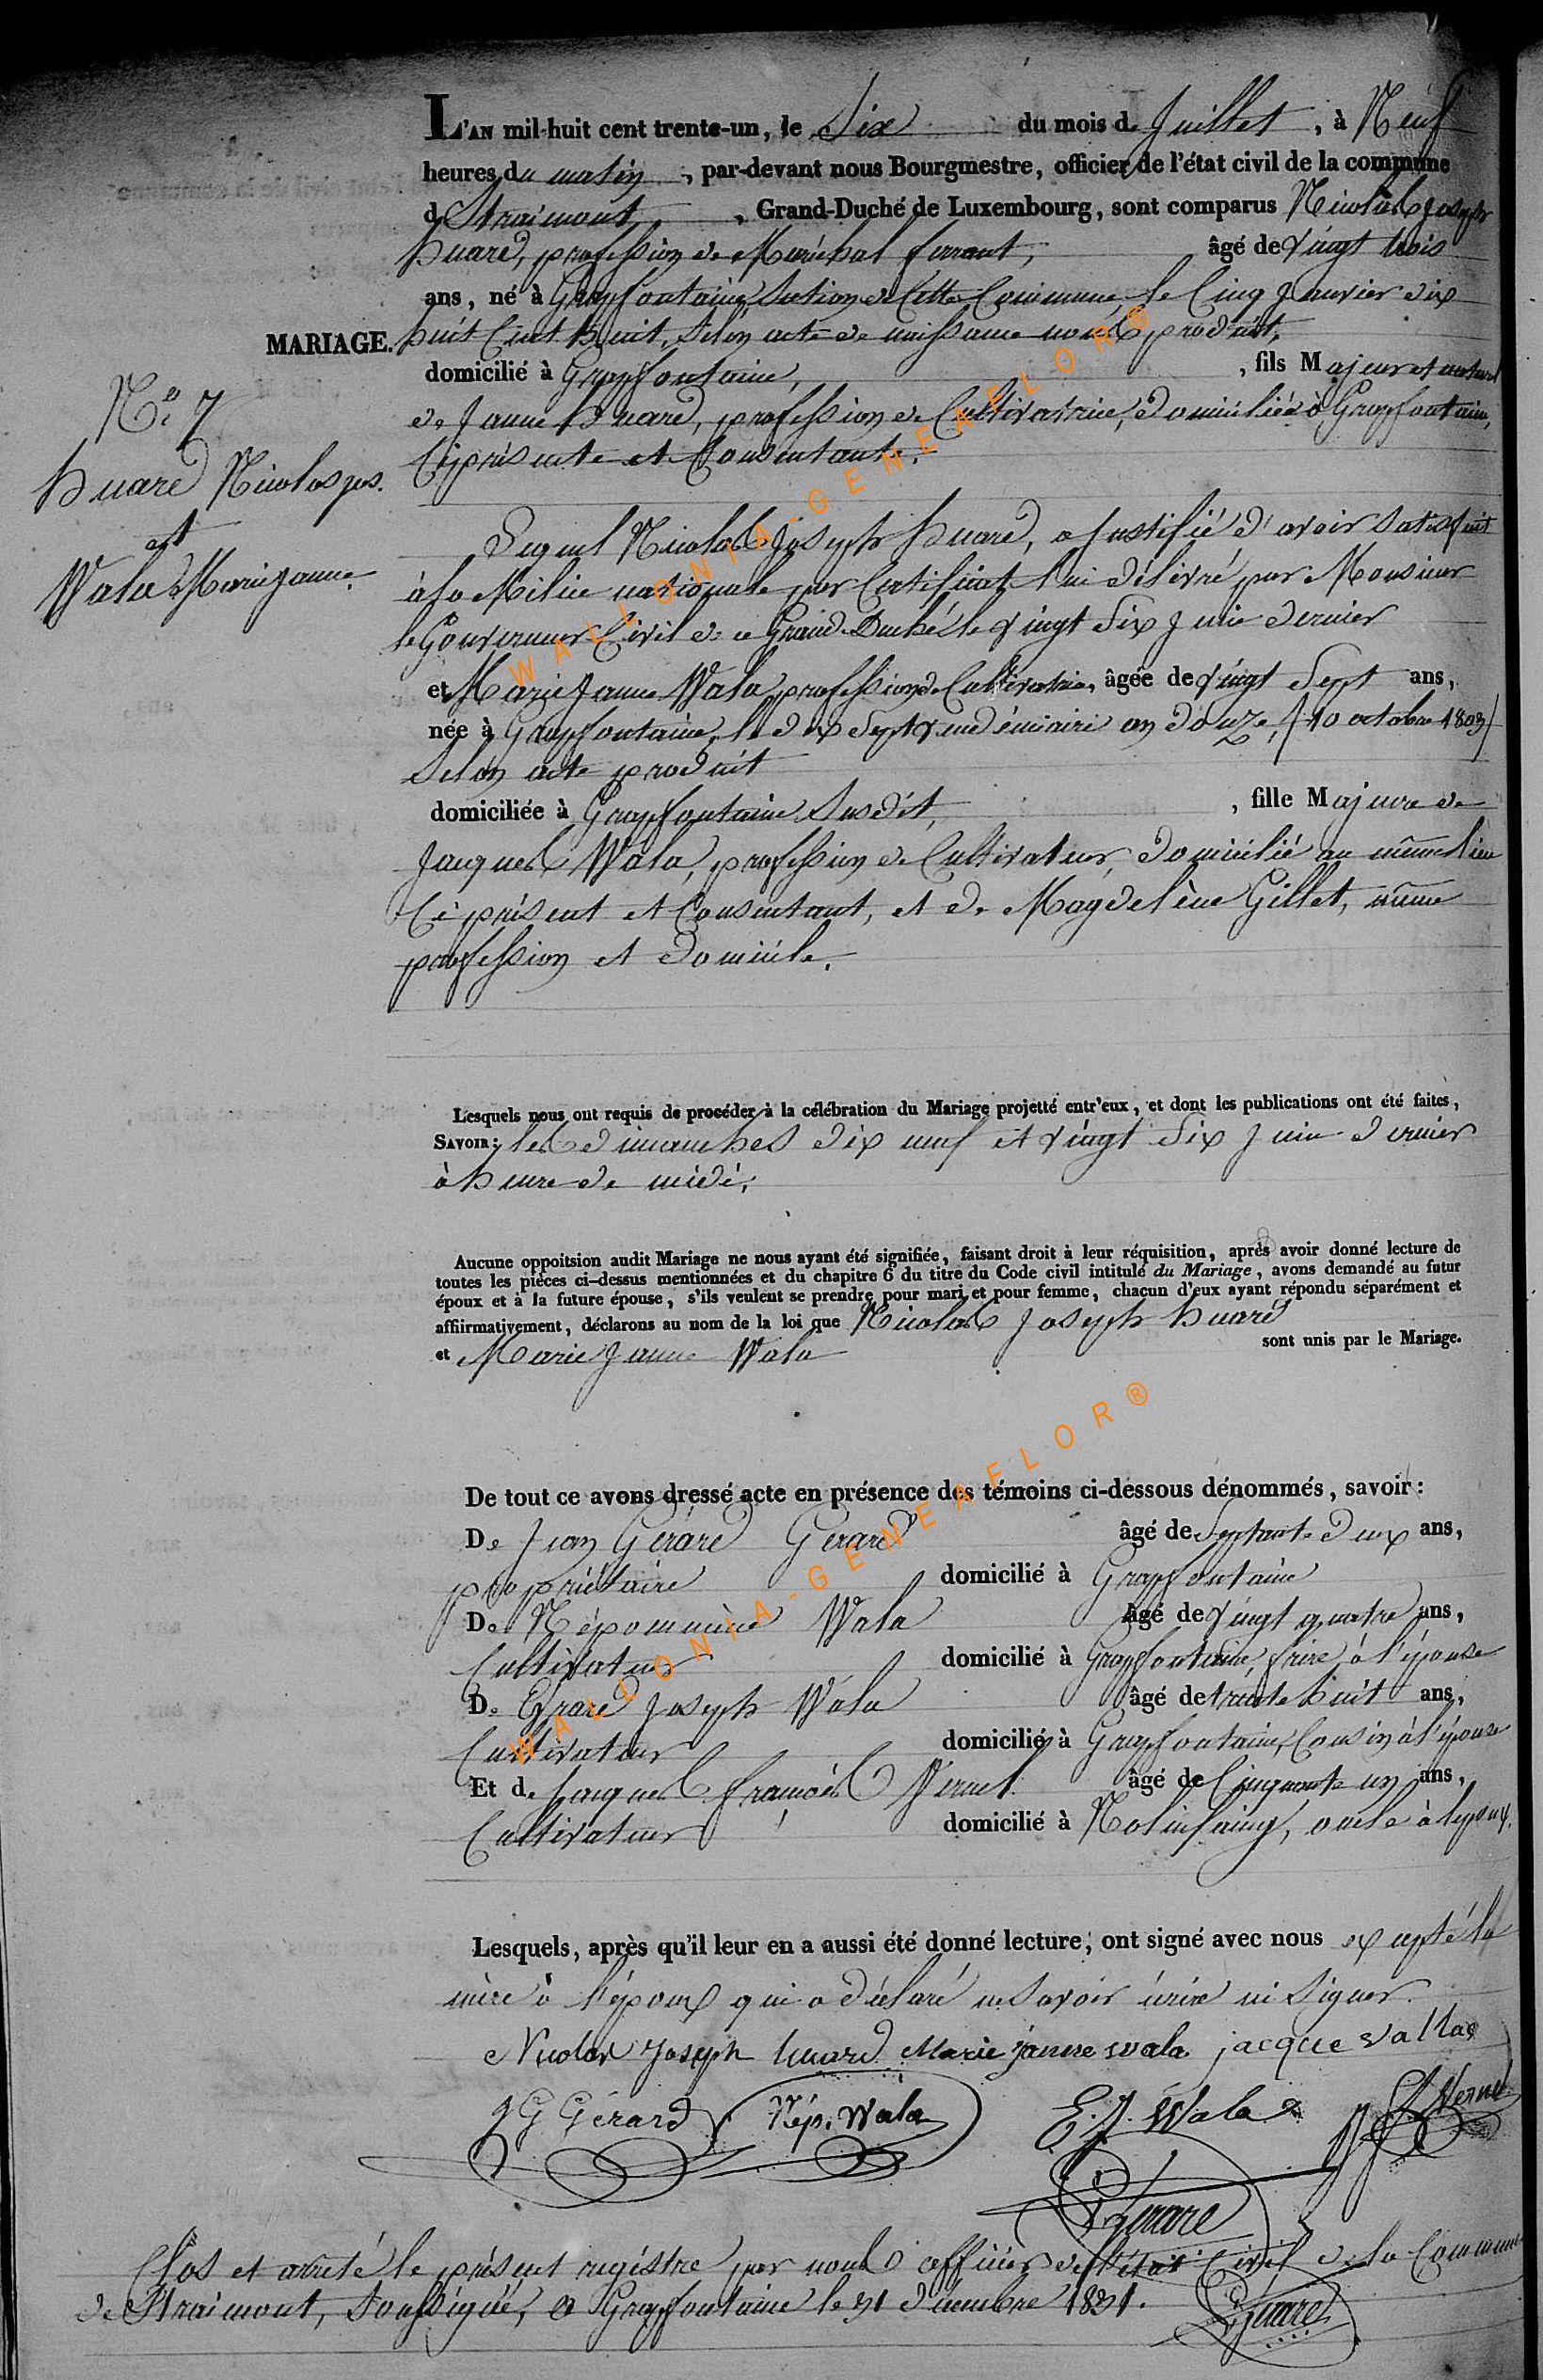 L'AN mil-huit cent trente-un, le Six du mois de Juillet, à Neuf
heures du matin, par-devant nous Bourgmestre, officier de l'état civil de la commune
de Straimont, Grand-Duché de Luxembourg, sont comparus Nicolas Joseph
huard, profession de Maréchal ferrant, âgé de vingt trois
ans, né à Grapfontaine, Section de Cette Commune le Cinq Janvier dix
huit Cent huit, Selon acte de naissance nous produit,
domicilié à Grapfontaine, , fils Majeur et naturel
de Jeanne huard, profession de Cultivatrice, domiciliée à Grapfontaine,
Ci présente et Consentante.
MARIAGE.
N.o 7
huard Nicolas jos.
et
Wala Marie Jeanne
Lequel Nicolas Joseph huard, a Justifié d'avoir Satisfait
à la Milice nationale par Certificat lui délivré par Monsieur
le Gouverneur Civil de ce Grand-Duché le vingt Six Juin dernier
et Marie Jeanne Wala, profession de Cultivatrice, âgée de vingt Sept ans,
née à Grapfontaine, le dix Sept vendémiaire an douze, (10 octobre 1803)
Selon acte produit
domiciliée à Grapfontaine Susdit, , fille Majeure de
Jacques Wala, profession de Cultivateur, domicilié au même lieu
Ci présent et Consentant, et de Magdelène Gillet, même
profession et domicile.
Lesquels nous ont requis de procéder à la célébration du Mariage projetté entr'eux, et dont les publications ont été faites,
SAVOIR: les dimanches dix neuf et vingt Six Juin dernier
à heure de midi,
Aucune oppoitsion audit Mariage ne nous ayant été signifiée, faisant droit à leur réquisition, après avoir donné lecture de
toutes les pièces ci-dessus mentionnées et du chapitre 6 du titre du Code civil intitulé du Mariage, avons demandé au futur
époux et à la future épouse, s'ils veulent se prendre pour mari et pour femme, chacun d'eux ayant répondu séparément et
affiirmativement, déclarons au nom de la loi que Nicolas Joseph huard
et Marie Jeanne Wala sont unis par le Mariage.
De tout ce avons dressé acte en présence des témoins ci-dessous dénommés, savoir:
De Jean Gérard Gerard âgé de Septante deux ans,
propriétaire domicilié à Grapfontaine
De Népomucène Wala âgé de vingt quatre ans,
Cultivateur domicilié à Grapfontaine, frère à l'épouse
De Evrard Joseph Wala âgé de trente huit ans,
Cultivateur domicilié à Grapfontaine, Cousin à l'épouse
Et de Jacques françois Vernel âgé de Cinquante un ans,
Cultivateur domicilié à Molinfaing, oncle à l'époux.
Lesquels, après qu'il leur en a aussi été donné lecture, ont signé avec nous excepté la
mère à l'époux qui a déclaré ne Savoir écrire ni Signer.
Nicolas Joseph huard Marie jeanne wala jacque vallas
J G Gérard Nép. Wala E. J. Wala J F Vernel
Gerard
Clos et arrêté le présent registre par nous officier de l'état Civil de la Commune
de Straimont, Soussigné, à Grapfontaine le 31 décembre 1831. Gerard
WALLONIA-GENEAFLOR®
WALLONIA-GENEAFLOR®